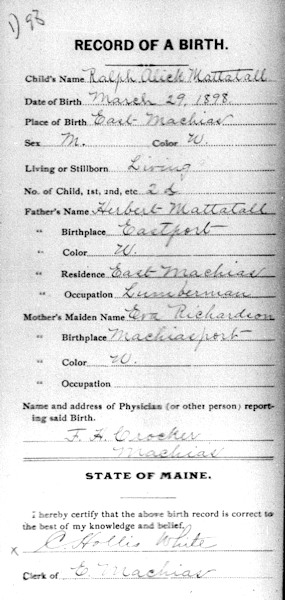 D 98
RECORD OF A BIRTH.
Child's Name Ralph Alick Mattatall
Date of Birth March 29, 1898
Place of Birth East Machias
Sex M. Color W.
Living or Stillborn Living
No. of Child, 1st, 2nd, etc 2d
Father's Name Herbert Mattatall
" Birthplace Eastport
" Color W.
" Residence East Machias
" Occupation Lumberman
Mother's Maiden Name Eva Richardson
" Birthplace Machiasport
" Color W.
" Occupation
Name and address of Physician (or other person) report-
ing said Birth.
F. H. Crocker
Machias
STATE OF MAINE.
I hereby certify that the above birth record is correct to
the best of my knowledge and belief.
x C. Hollis White
Clerk of E. Machias